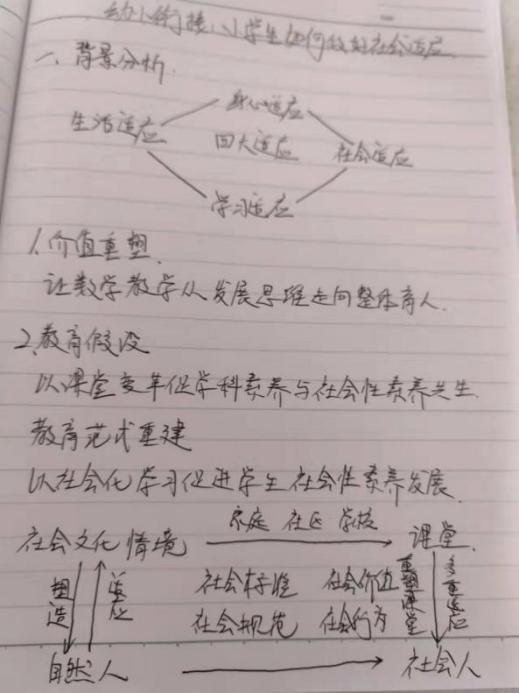 幼小衔接，小学生如何做好社会适应
一、背景分析
身心适应
生活适应 四大适应 社会适应
学习适应
1.价值重塑
让数学教学从发展思维走向整体育人.
2.教育假设
以课堂变革促学科素养与社会性素养共生.
教育范式重建
以社会化学习促进学生社会性素养发展.
家庭 社区 学校
社会文化情境 课堂
塑造 适应 社会标准 社会价值 重塑课堂 多重适应
社会规范 社会行为
自然人 社会人